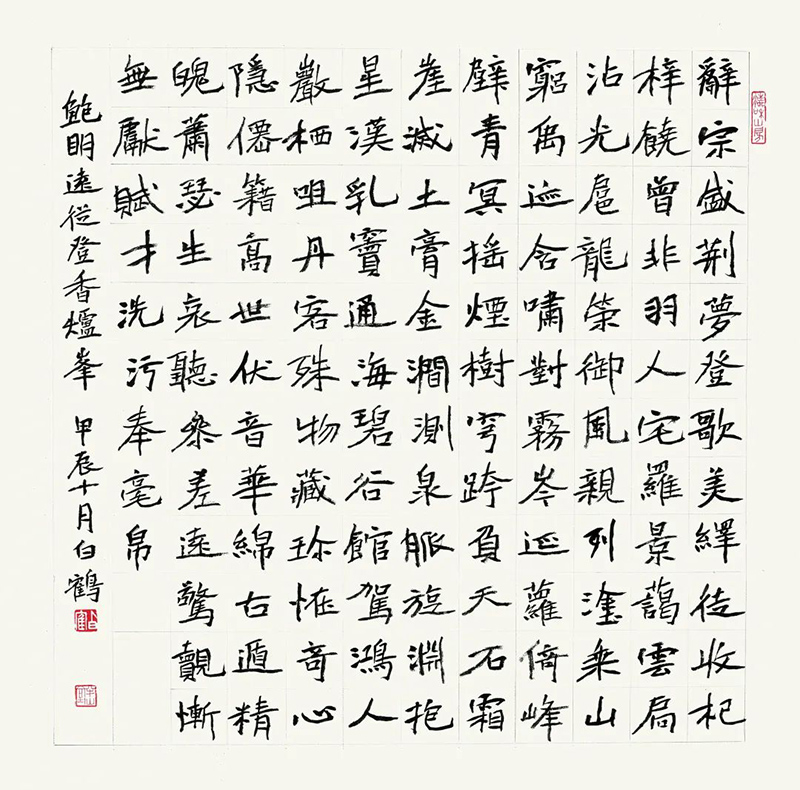 辭宗盛荊夢登歌美繹徒收杞
梓饒曾非羽人宅羅景藹雲扃
沾光扈龍策御風親列塗乘山
窮禹迹含嘯對霧岑延蘿倚峰
壁青冥搖煙樹穹跨負天石霜
崖滅土膏金澗測泉脈旋淵抱
星漢乳竇通海碧谷館駕鴻人
巖栖咀丹客殊物藏珎怪奇心
隱僊籍高世伏音華綿古遁精
魄蕭瑟生哀聽參差遠驚覿慚
無獻賦才洗污奉毫帛
鮑明遠從登香爐峯 甲辰十月白鶴